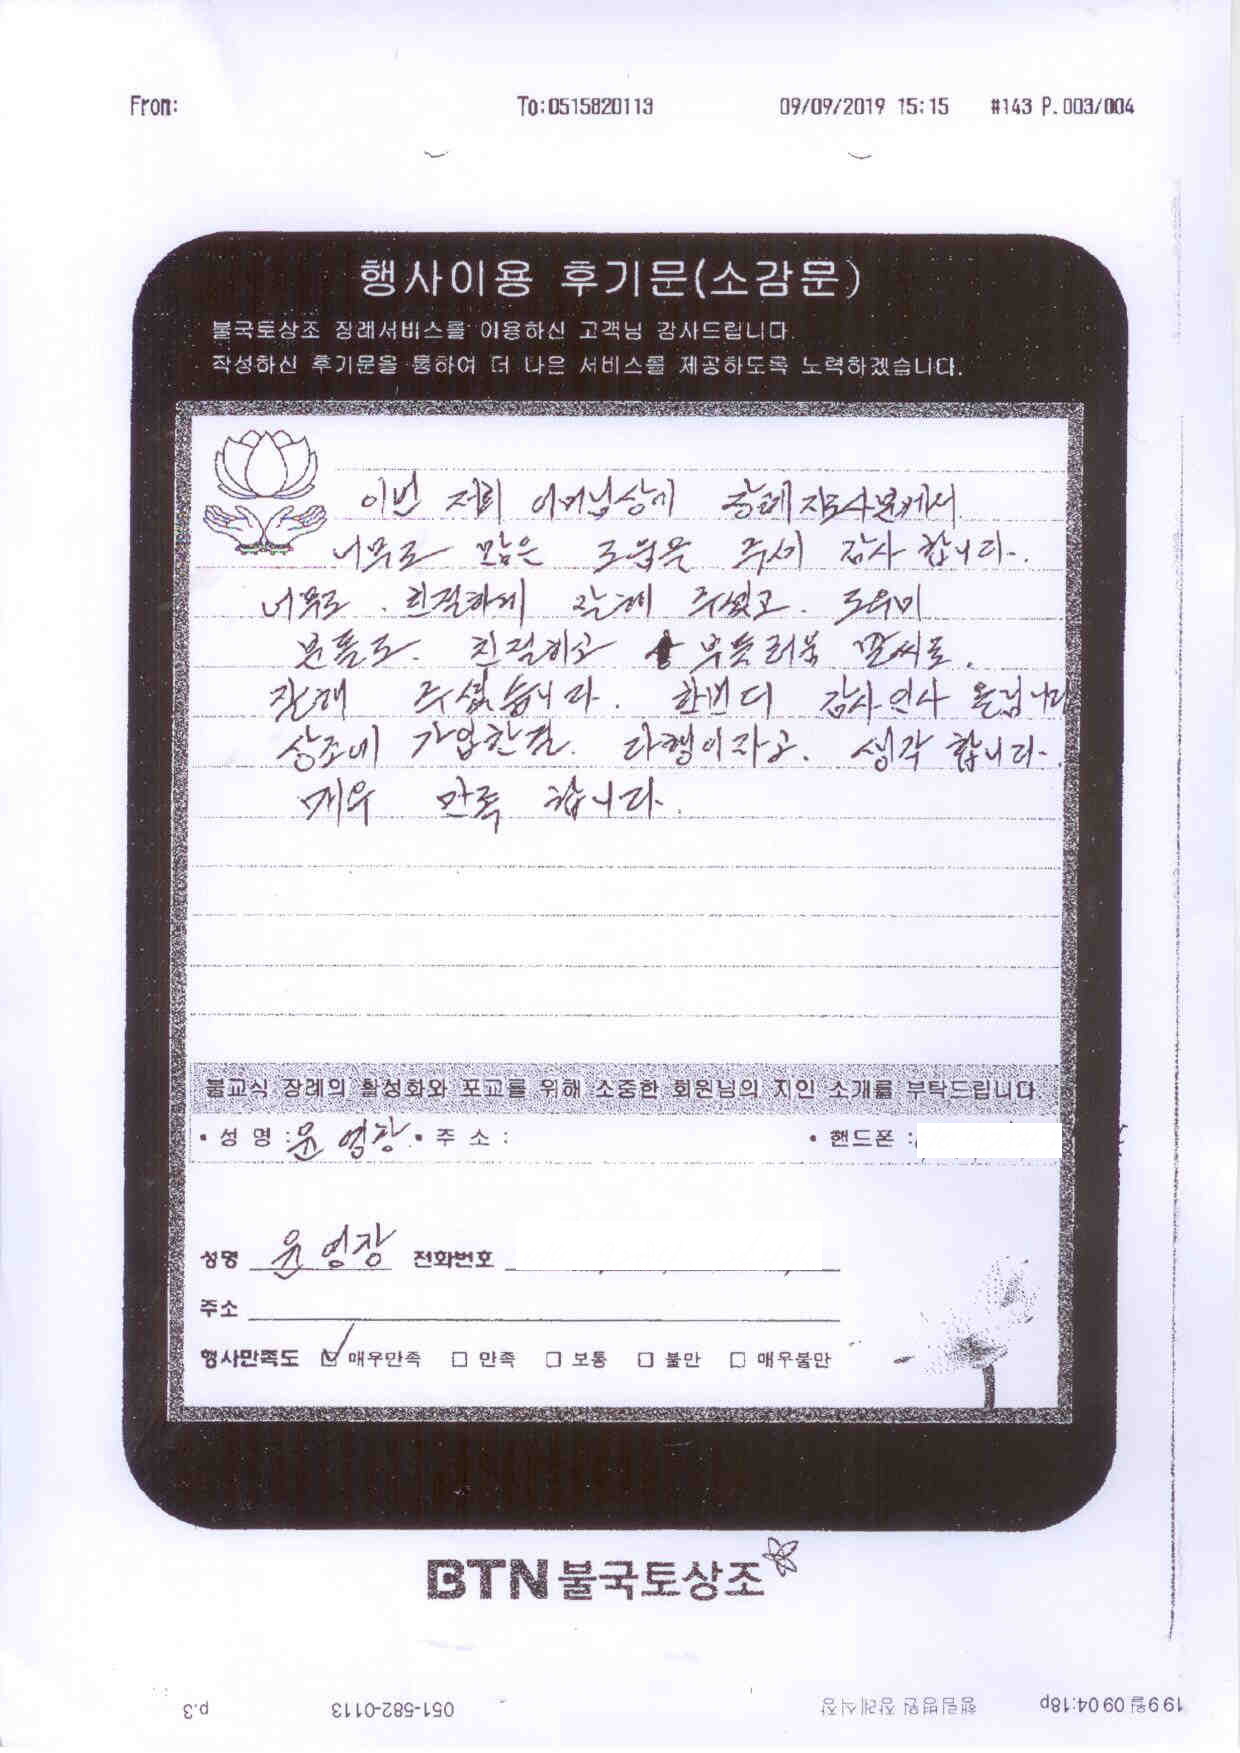 From: To:0515820113 09/09/2019 15:15 #143 P.003/004
행사이용 후기문(소감문)
불국토상조 장례서비스를 이용하신 고객님 감사드립니다.
작성하신 후기문을 통하여 더 나은 서비스를 제공하도록 노력하겠습니다.
이번 저희 어머님상에 장례지도사분께서
너무도 많은 도움을 주셔 감사합니다.
너무도 친절하게 잘해 주셨고. 도우미
분들도. 친절하고 부듯러운 말씨로.
잘해 주셨습니다. 한번더 감사인사 올립니다
상조에 가입한걸. 다행이라고. 생각합니다.
매우 만족 합니다.
불교식 장례의 활성화와 포교를 위해 소중한 회원님의 지인 소개를 부탁드립니다.
• 성 명 : 윤영창 • 주 소 : • 핸드폰 :
성명 윤영창 전화번호
주소
행사만족도 매우만족 만족 보통 불만 매우불만
BTN불국토상조
199월 09 04:18p 해림병원 장례식장 051-582-0113 p.3